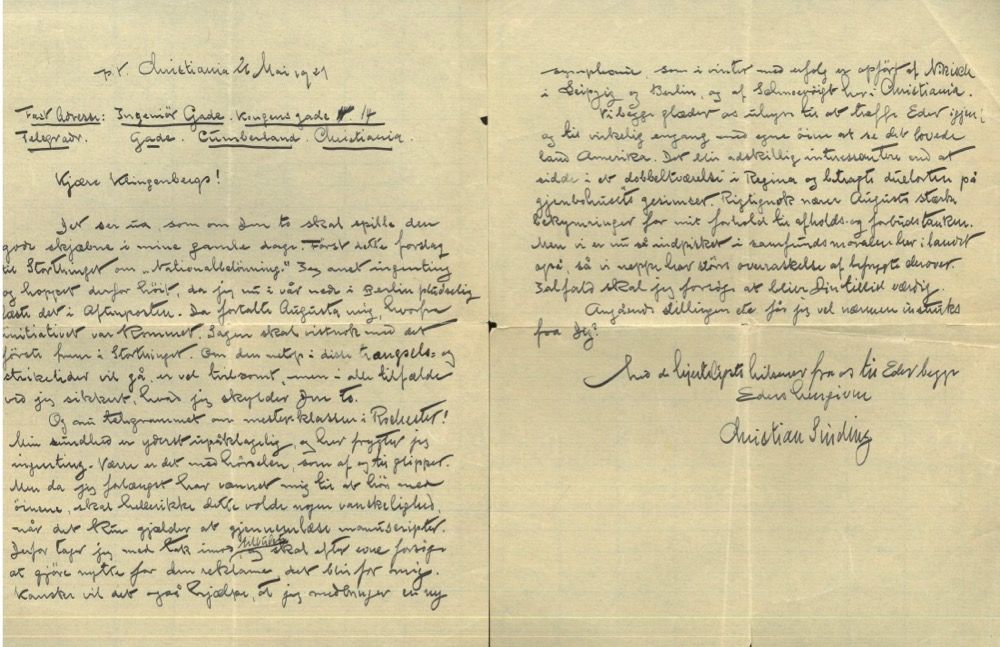 p.t. Christiania 26 Mai 1921
Fast Adresse: Ingeniør Gade. Kongens gade 14
Telegradr. Gade. Cumberland. Christiania.
Kjære Klingenbergs!
Det ser ua som om Jer to skal spille den
gode skjæbne i mine gamle dage. Først dette forslag
til Stortinget om „Nationalbelönning." Jeg anet ingenting
og hoppet derfor höit, da jeg nu i vår nede i Berlin pludselig
læste det i Aftenposten. Da fortalte Augusta mig, hvorfra
initiativet var kommet. Sagen skal visstnok med det
förste frem i Stortinget. Om den netop i disse trængsels- og
streiketider vil gå, er vel tvilsomt, men i alle tilfælde
ved jeg sikkert, hvad jeg skylder Jer to.
Og nu telegrammet om mester-klassen i Rochester!
Min sundhed er yderst upåklagelig, og her frygter jeg
ingenting. Værre er det med hörselen, som af og til glipper.
Men da jeg forlængst har vænnet mig til at höre med
öinene, skal hellerikke dette volde nogen vanskelighed,
når det kun gjælder at gjennemlæse manuscripter.
Derfor tager jeg med tak imod tilbudet, skal efter evne forsöge
at gjöre nytte for den reklame, det blir for mig.
Kanske vil det også hjælpe, at jeg medbringer en ny
symphonie, som i vinter med erfolg er opfört af Nikisch
i Leipzig og Berlin, og af Schneevoigt her i Christiania.
Vi begge glæder os uhyre til at træffe Eder igjen,
og til virkelig engang med egne öine at se det lovede
land Amerika. Det blir adskillig interessantere end at
sidde i et dobbeltværelse i Regina og betragte duelorten på
gjenbohusets gesimser. Rigtignok nærer Augusta stærke
bekymringer for mit forhold til afholds- og forbudstanken.
Men vi er nu så indpisket i samfundsmoralen her i landet
også, så vi neppe har större overraskelse at befrygte derover.
Ialfald skal jeg forsöge at blive Din tillid værdig.
Angående stillingen etc får jeg vel nærmere instruks
fra Dig?
Med de hjerteligste hilsener fra os til Eder begge
Eders hengivne
Christian Sinding